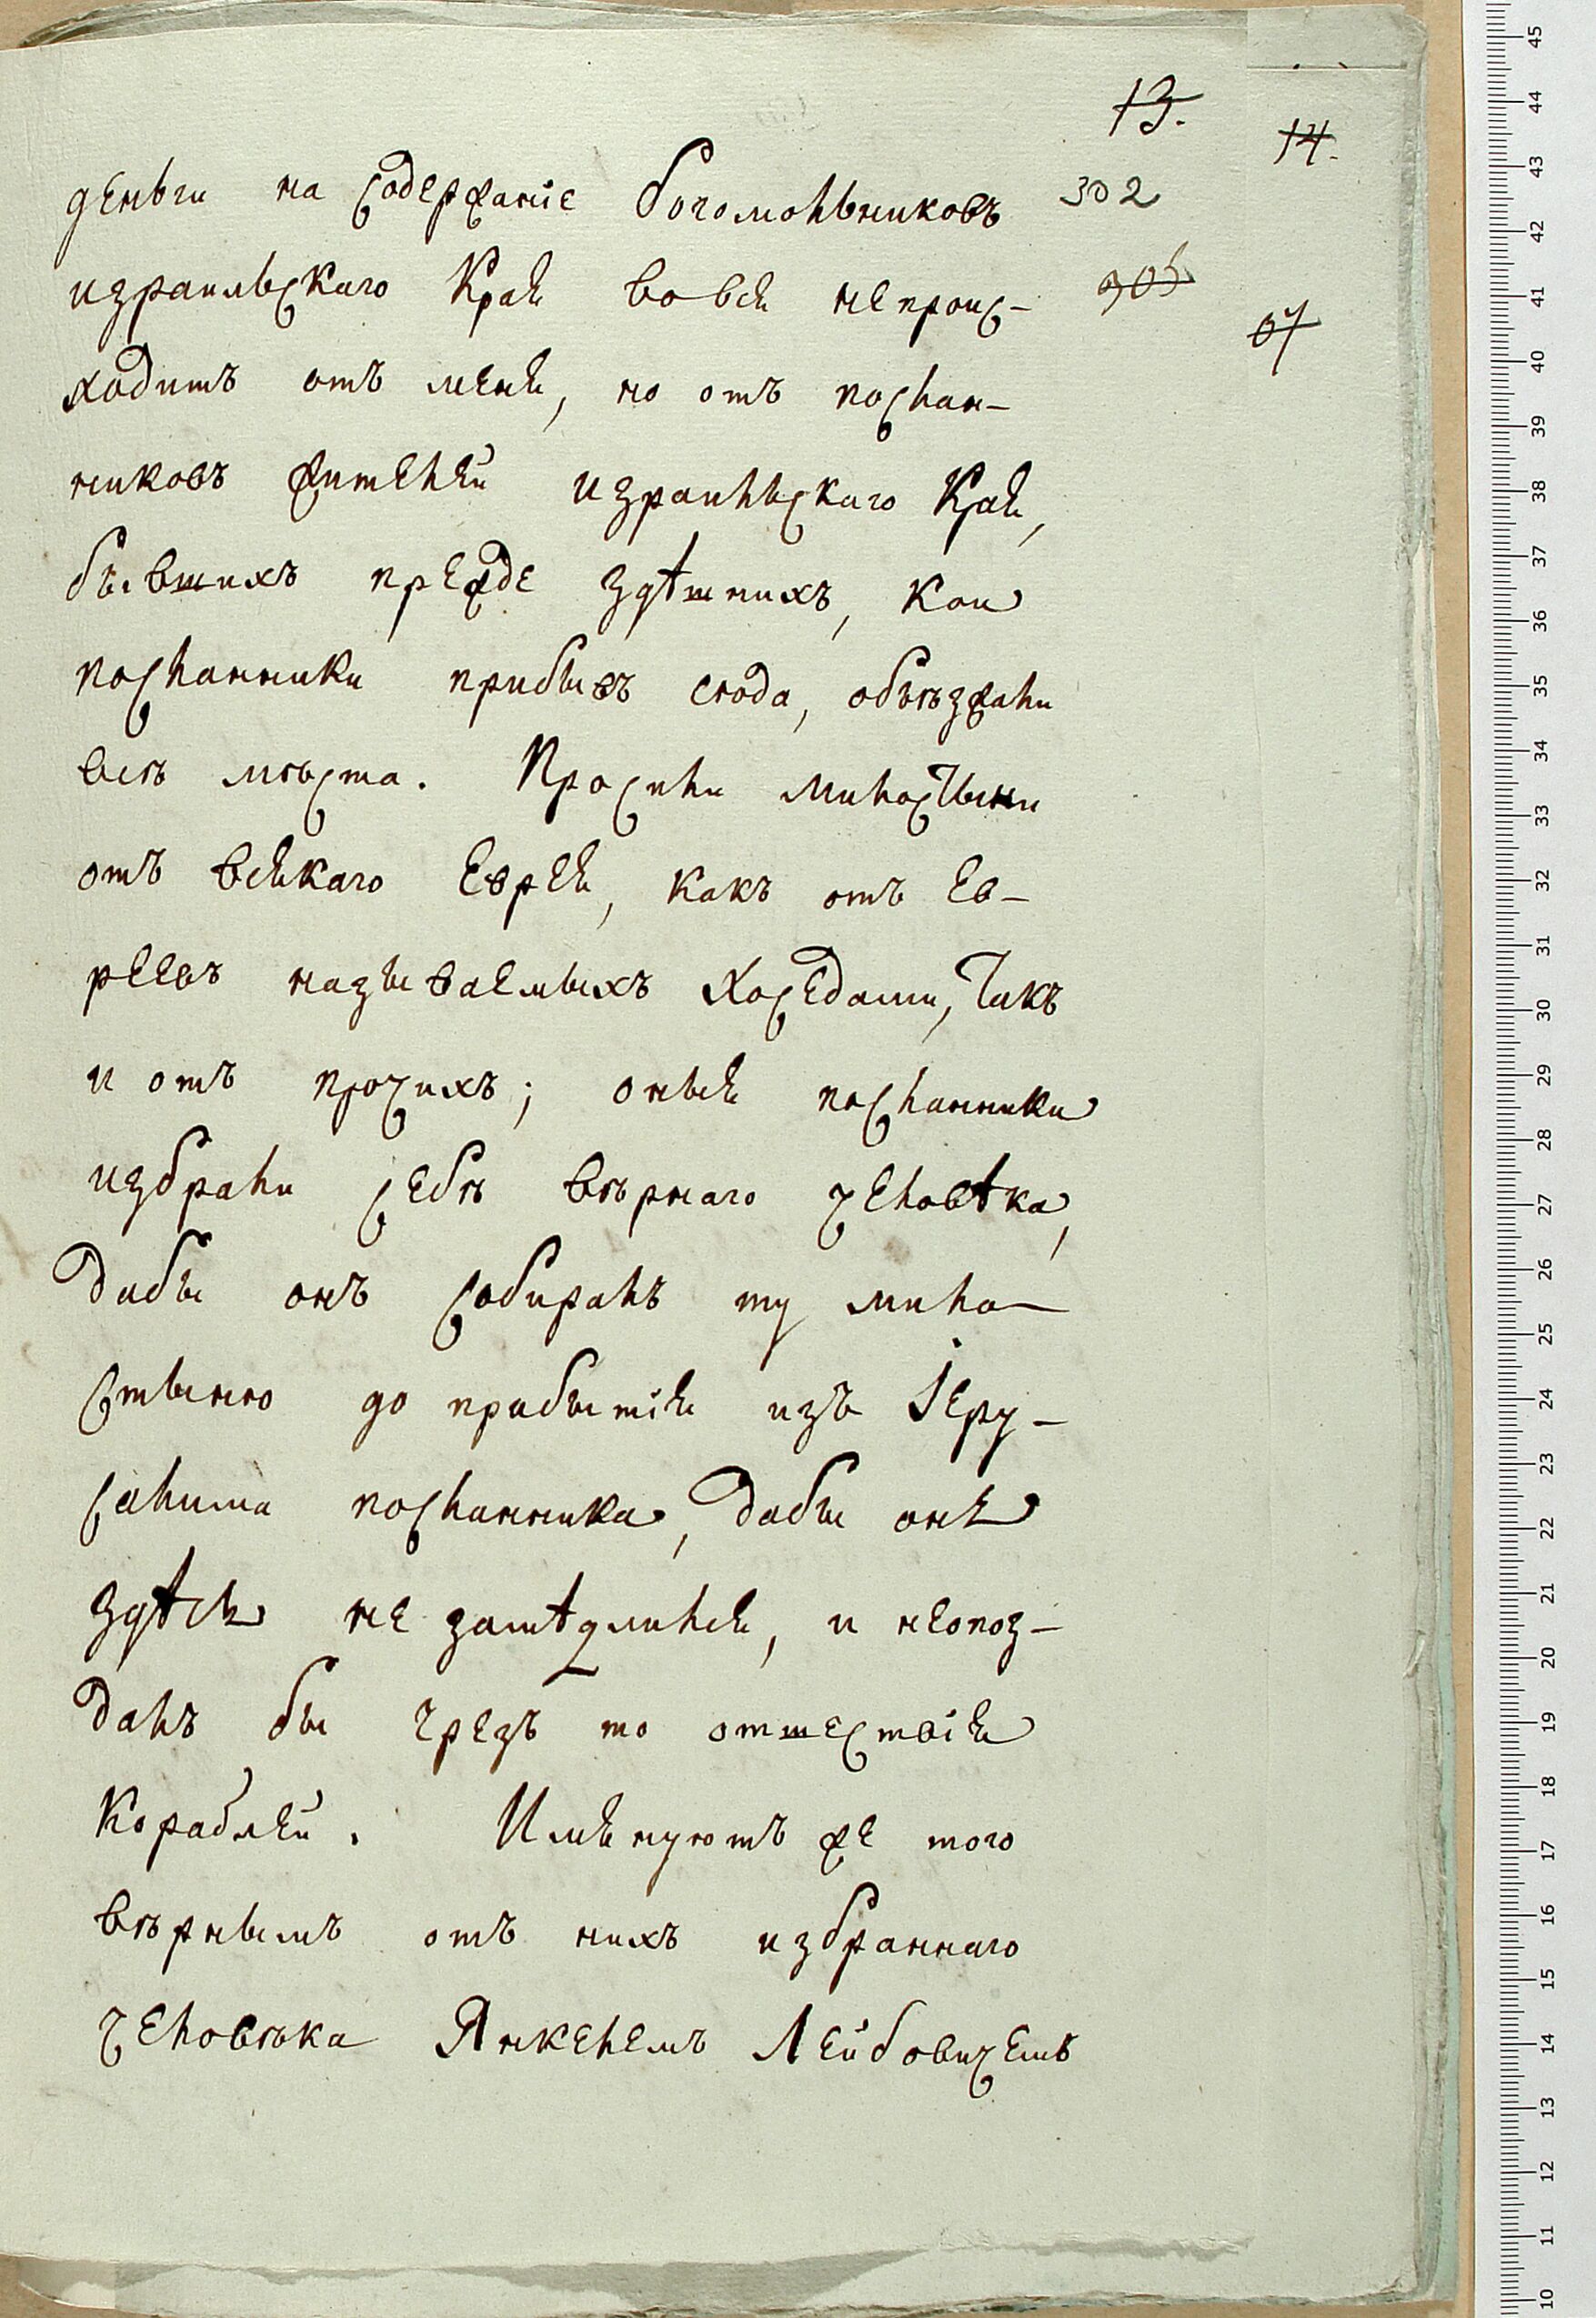 13.
14.
деньги на содержаніе богомольниковъ
302
израильскаго Края вовся непроис-
303
07
ходитъ отъ меня, но отъ послан-
никовъ жителей израильскаго Края,
бывшихъ прежде здѣшнихъ, кои
посланники прибывъ сюда, объѣзжали
всѣ мѣста. Просили милостыни
отъ всякаго Еврея, какъ отъ Ев-
реевъ называемыхъ Хоседами, Такъ
и отъ прочихъ; оныя посланники
избрали себѣ вѣрнаго человѣка,
дабы онъ собиралъ ту мило-
стыню до прибытія изъ Іеру-
салима посланника, дабы онъ
здѣсь не замѣдлился, и неопоз-
далъ бы чрезъ то отшествія
Кораблей. Имянуютъ же того
вѣрнымъ отъ нихъ избраннаго
человѣка Янкелемъ Лейбовичемъ